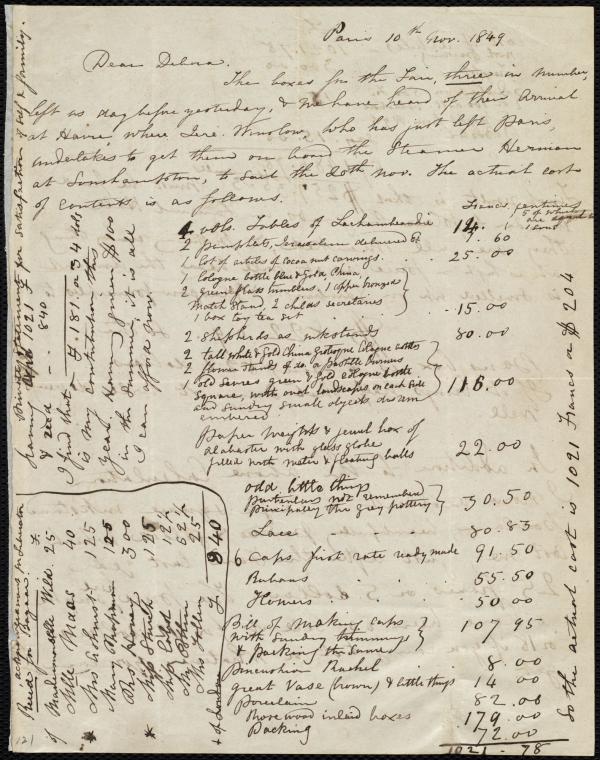 Paris 10th Nov. 1849
Dear Debora.
The boxes for the Fair, three in number,
left us day before yesterday, & we have heard of their arrival
at Havre, where Jere. Winslow, who has just left Paris,
undertakes to get them on board the Steamer Herman
at Southampton, to sail the 20th nov. The actual cost
of contents is as follows.
Francs, centimes
5 of which are equal to 1 sous
4 vols. Fables of Lachambeaudie 14.
2 pamphlets, Jerusalem delivered &c 9. 60
1 lot of articles of cocoa nut carvings. 25. 00
1 Cologne bottle blue & Gold China,
2 green glass tumblers. 1 upper bronzed
Match Stand, 2 childs secretaries
1 box toy tea set
15.00
2 shepherds as inkstands 30.00
2 tall white & Gold China grotesque Cologne bottles
2 flower stands of do. 2 pastille burners
1 old Sevres green & Gold Cologne bottle
Square, with oval landscapes on each side
and sundry small objects disrem
embered
116.00
paper weights & jewel box of
alabaster with glass globe
filled with water & floating balls
22.00
odd little things
particulars not remembered
principally the grey pottery
30.50
Lace 80.83
6 Caps first rate ready made 91.50
Ribbons 55.50
Flowers 50.00
Bill of making caps
with sundry trimmings
& packing the same
107 95
pincushion Rachel 8.00
great Vase (brown) & little things 14 00
porcelain 82.00
Rosewood inlaid boxes 179.00
Packing 72.00
1021 - 78
So the actual cost is 1021 Francs or $204
statement for satisfaction of self & family.
Having 1021 F
& recd - - 840
I find that F. 181 or 34 dols
is my Contribution this
year. Having given $100
in the Summer, it is all
I can afford now.
acknowledgements for Liberator
Recd for Bazaar. F.
of Mademoiselle Wild 25
Mlle Maas 40
Mrs 125
Mary 125
Mrs 300
Miss 125
Miss 12½
62½
Mrs Follen 25
F 840
+ of London
12)